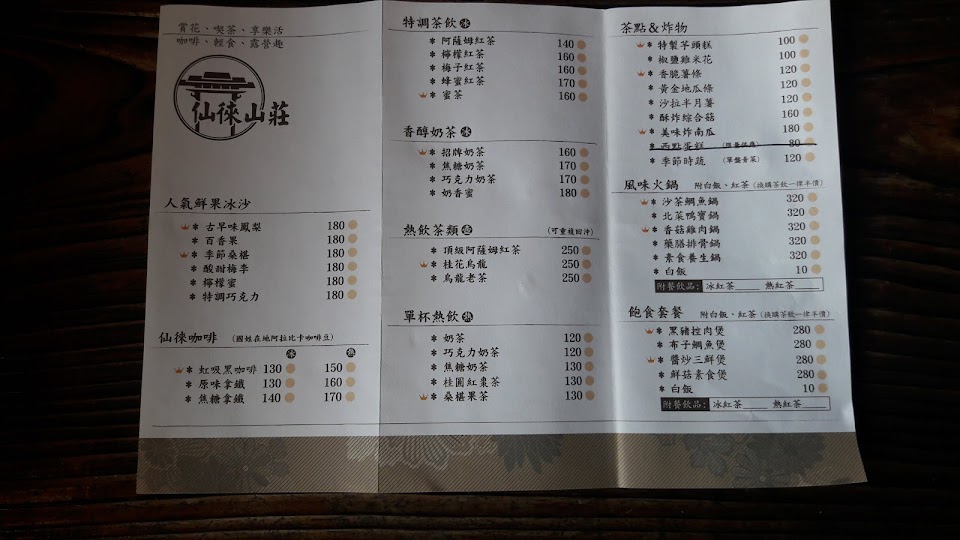 賞花、喫茶、享樂活
咖啡、輕食、露營趣
仙徠山莊
人氣鮮果冰沙
古早味鳳梨 180
百香果 180
季節桑椹 180
酸甜梅李 180
檸檬蜜 180
特調巧克力 180
仙徠咖啡 (國姓在地阿拉比卡咖啡豆)
冰 熱
虹吸黑咖啡 130 150
原味拿鐵 130 160
焦糖拿鐵 140 170
特調茶飲 冰
阿薩姆紅茶 140
檸檬紅茶 160
梅子紅茶 160
蜂蜜紅茶 170
蜜茶 160
香醇奶茶 冰
招牌奶茶 160
焦糖奶茶 170
巧克力奶茶 170
奶香蜜 180
熱飲茶類 壺 (可重複回沖)
頂級阿薩姆紅茶 250
桂花烏龍 250
烏龍老茶 250
單杯熱飲 熱
奶茶 120
巧克力奶茶 120
焦糖奶茶 130
桂圓紅棗茶 130
桑椹果茶 130
茶點&炸物
特製芋頭糕 100
椒鹽雞米花 100
香脆薯條 120
黃金地瓜條 120
沙拉半月薯 120
酥炸綜合菇 160
美味炸南瓜 180
西點蛋糕 (限量供應) 80
季節時蔬 (單盤青菜) 120
風味火鍋 附白飯、紅茶 (換購茶飲一律半價)
沙茶鯛魚鍋 320
北菜鴨寶鍋 320
香菇雞肉鍋 320
藥膳排骨鍋 320
素食養生鍋 320
白飯 10
附餐飲品: 冰紅茶____ 熱紅茶____
飽食套餐 附白飯、紅茶 (換購茶飲一律半價)
黑豬控肉煲 280
布子鯛魚煲 280
醬炒三鮮煲 280
鮮菇素食煲 280
白飯 10
附餐飲品: 冰紅茶____ 熱紅茶____